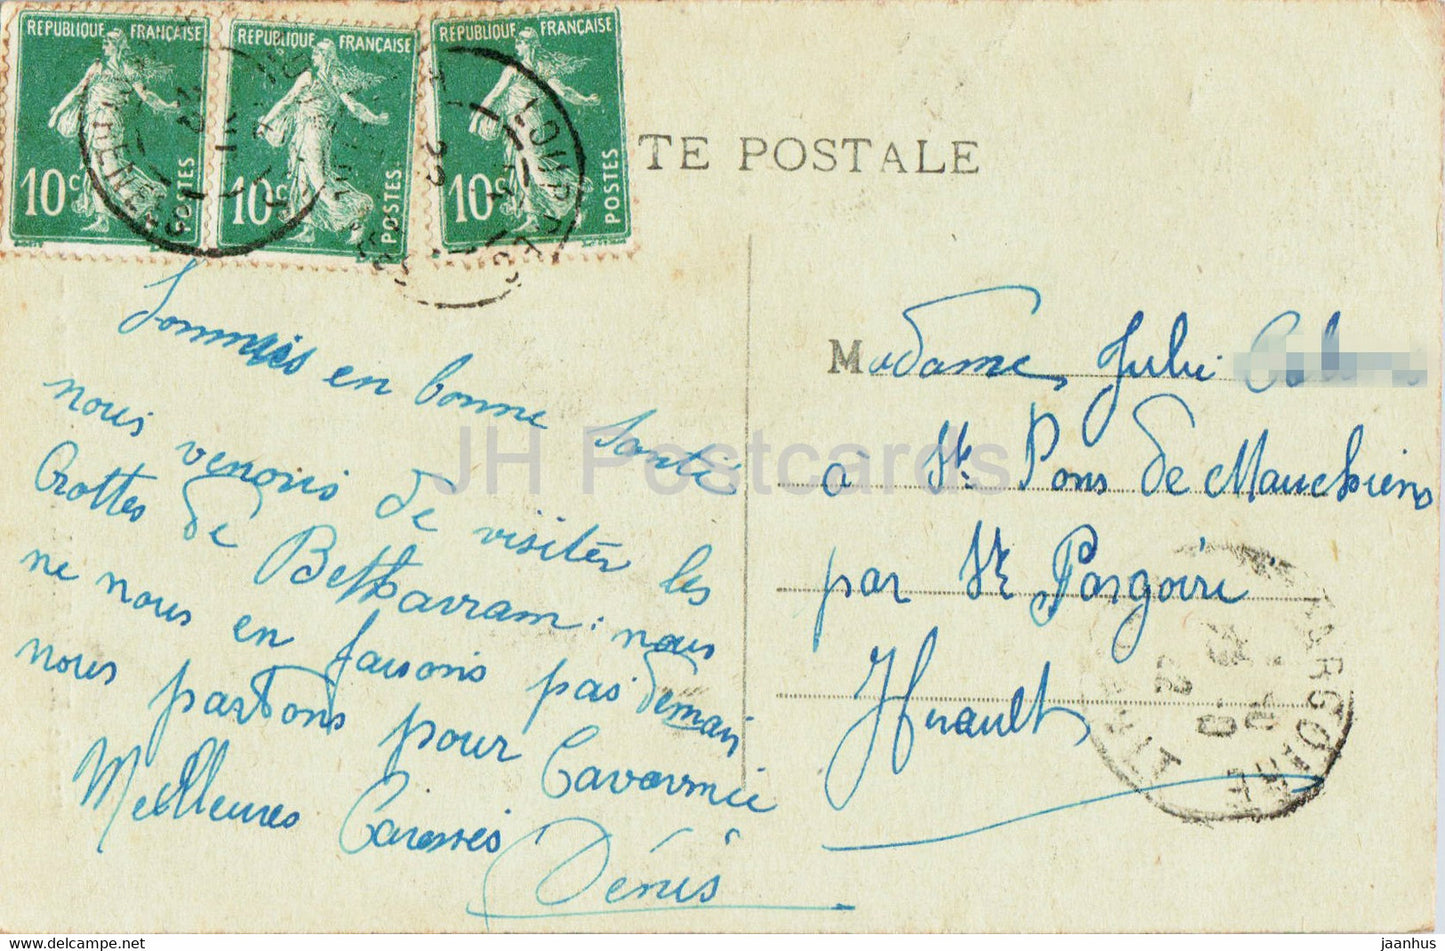 RÉPUBLIQUE FRANÇAISE
10c POSTES
RÉPUBLIQUE FRANÇAISE
10c POSTES
RÉPUBLIQUE FRANÇAISE
10c POSTES
LOURDES
TE POSTALE
Sommes en bonne Santé
nous venons de visiter les
Grottes de Betharram. nous
ne nous en faisons pas demain
nous partons pour Gavarnie
Meilleures Caresses
Dénis
Madame Julie
à St Pons de Mauchiens
par St Pargoire
Hérault
PARGOIRE
JH Postcards
delcampe.net
jaanhus